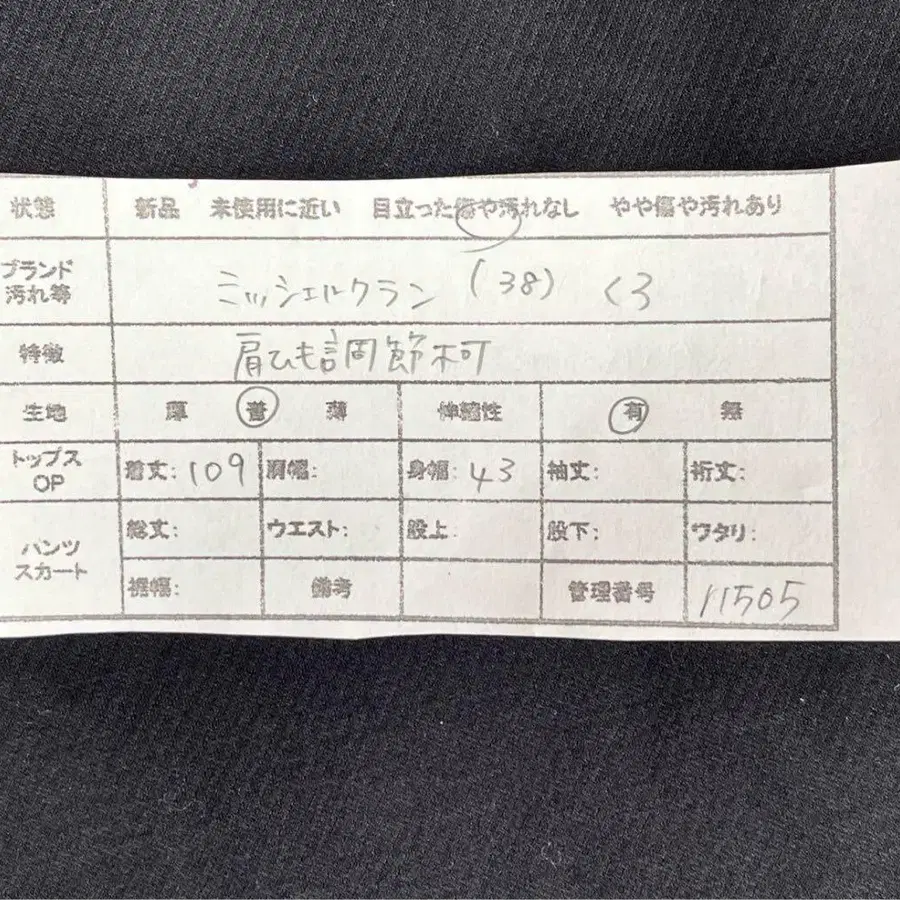 状態 新品 未使用に近い 目立った傷や汚れなし やや傷や汚れあり
ブランド
汚れ等 ミッシェルクラン (38) く3
特徴 肩ひも調節不可
生地 厚 普 薄 伸縮性 有 無
トップス
OP 着丈: 109 肩幅: 身幅: 43 袖丈: 裄丈:
パンツ
スカート 総丈: ウエスト: 股上: 股下: ワタリ:
裾幅: 備考 管理番号 11505